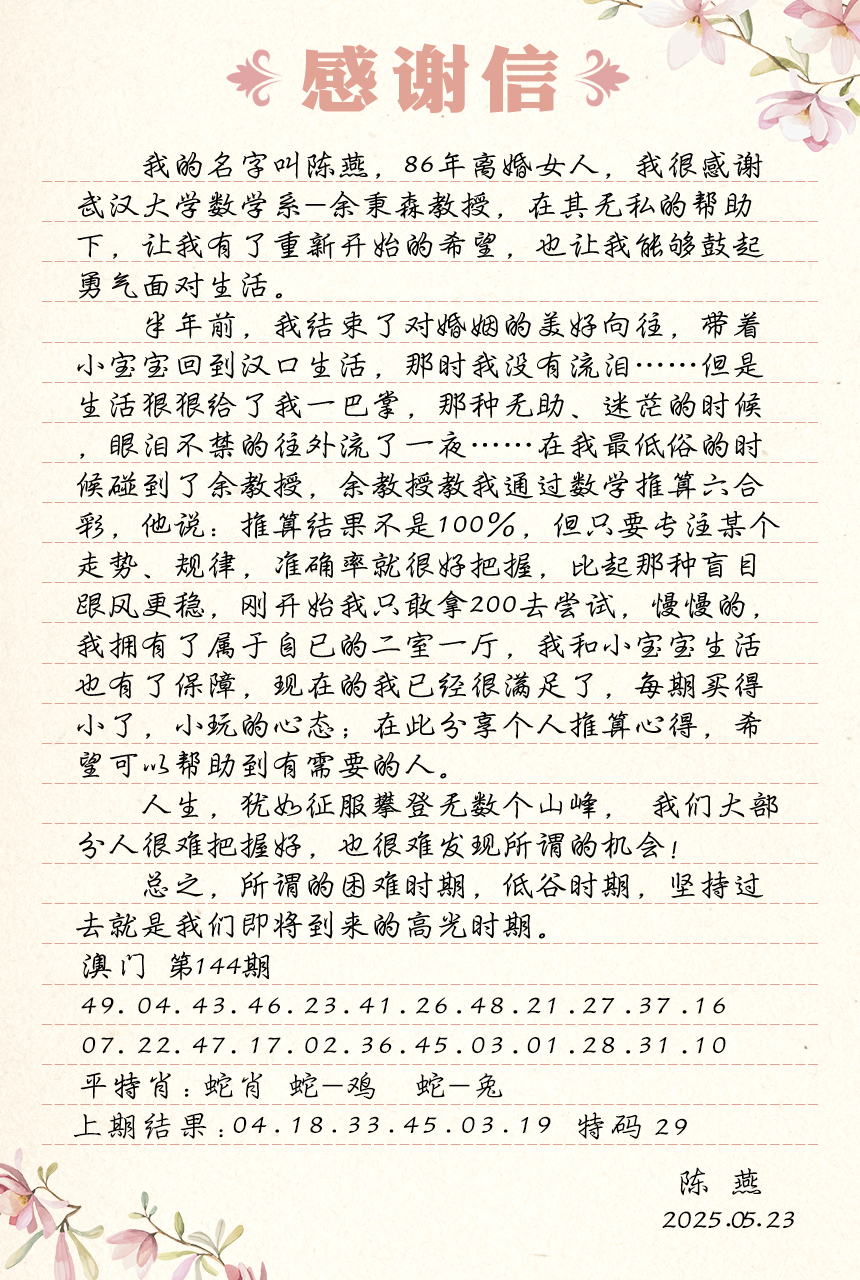 感谢信
我的名字叫陈燕，86年离婚女人，我很感谢
武汉大学数学系—余秉森教授，在其无私的帮助
下，让我有了重新开始的希望，也让我能够鼓起
勇气面对生活。
半年前，我结束了对婚姻的美好向往，带着
小宝宝回到汉口生活，那时我没有流泪……但是
生活狠狠给了我一巴掌，那种无助、迷茫的时候
，眼泪不禁的往外流了一夜……在我最低俗的时
候碰到了余教授，余教授教我通过数学推算六合
彩，他说：推算结果不是100%，但只要专注某个
走势、规律，准确率就很好把握，比起那种盲目
跟风更稳，刚开始我只敢拿200去尝试，慢慢的，
我拥有了属于自已的二室一厅，我和小宝宝生活
也有了保障，现在的我已经很满足了，每期买得
小了，小玩的心态；在此分享个人推算心得，希
望可以帮助到有需要的人。
人生，犹如征服攀登无数个山峰， 我们大部
分人很难把握好，也很难发现所谓的机会！
总之，所谓的困难时期，低谷时期，坚持过
去就是我们即将到来的高光时期。
澳门 第144期
49.04.43.46.23.41.26.48.21.27.37.16
07.22.47.17.02.36.45.03.01.28.31.10
平特肖：蛇肖 蛇—鸡 蛇—兔
上期结果：04.18.33.45.03.19 特码 29
陈 燕
2025.05.23